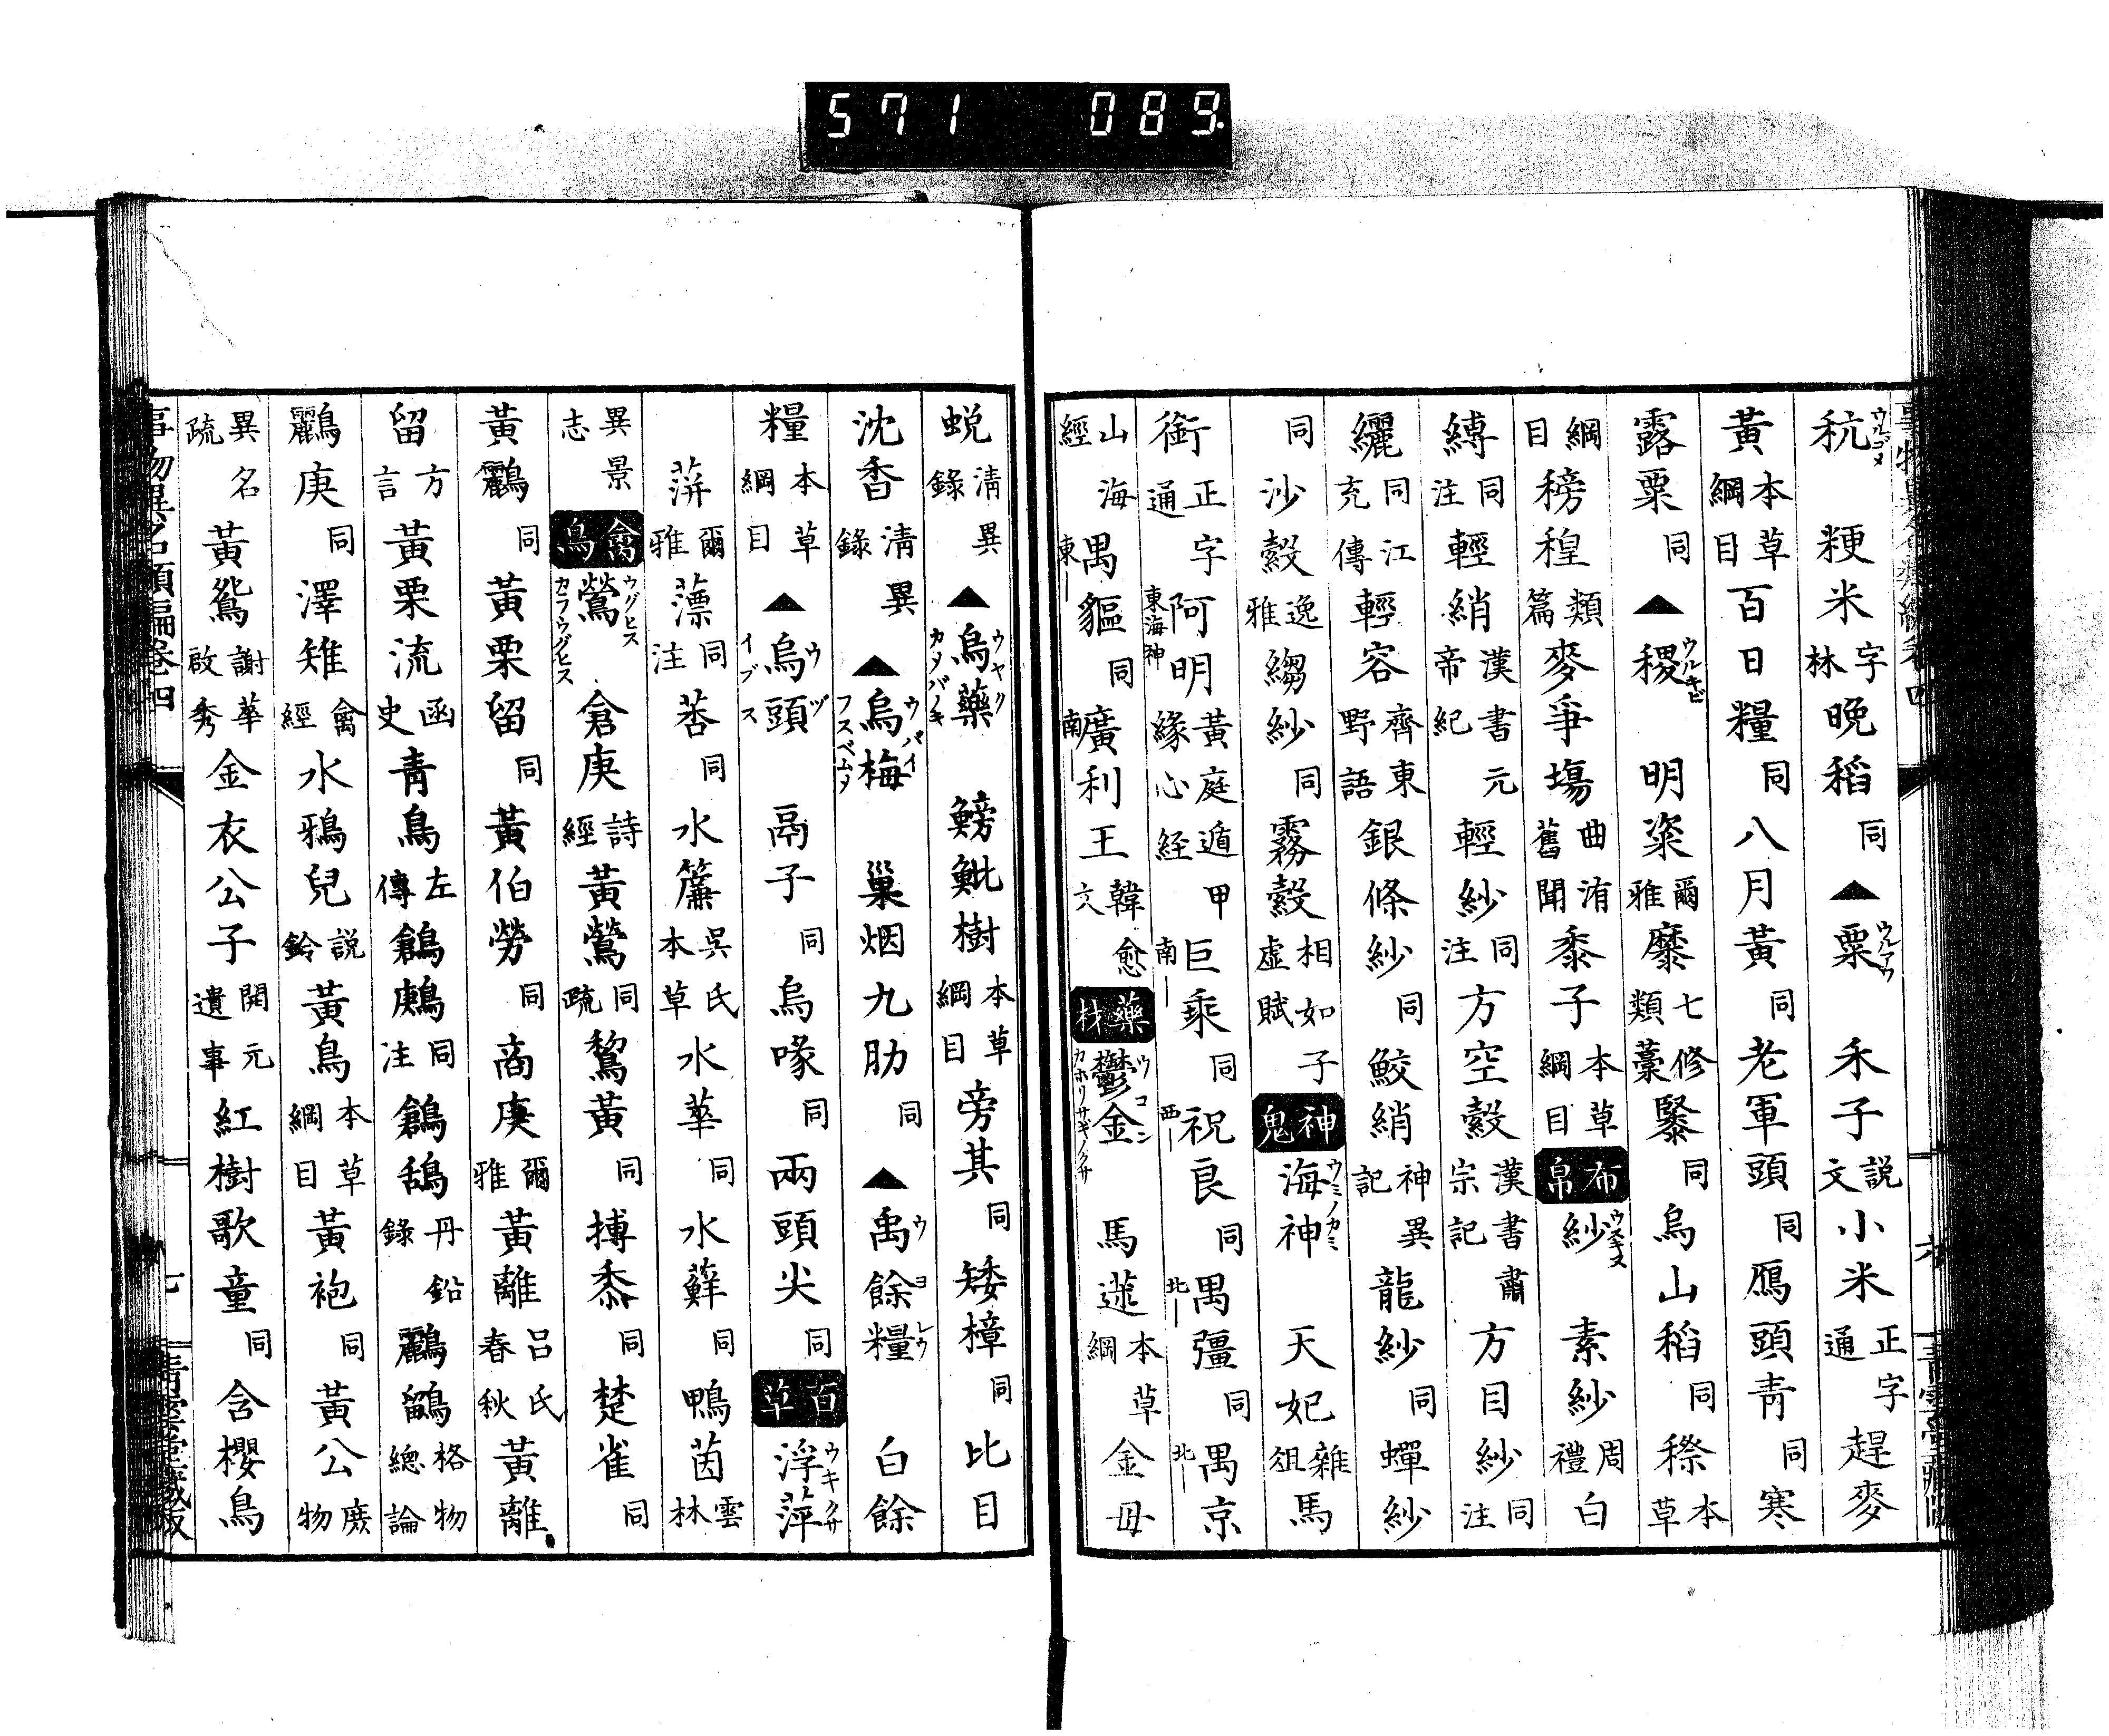 571 089
秔ウルゴメ 粳米字林晩稻同▲粟ウルアワ 禾子説文小米正字通趕麥
黃本草綱目百日糧同八月黃同老軍頭同鴈頭青同寒
露粟同▲稷ウルキビ 明粢爾雅穈七修類藁䵖同烏山稻同穄本草
綱目䅭䅣類篇麥爭場曲洧舊聞黍子本草綱目 布帛 紗ウスキヌ 素紗周禮白
縛同注輕綃漢書元帝紀輕紗同注方空縠漢書肅宗記方目紗同注
纚同江充傳輕容齊東野語銀條紗同鮫綃神異記龍紗同蟬紗
同沙縠逸雅縐紗同霧縠相如子虛賦 神鬼 海神ウミノカミ 天妃雜俎馬
銜正字通阿明東海神黃庭遁甲緣心経巨乘南—同祝良西—同禺彊北—同禺京北—
山海經禺䝙東—同廣利王南—韓愈文 藥材 鬱金ウコン カホリサギノクサ 馬蒁本草綱金母
蛻清異錄▲烏藥ウヤク カタバノキ 鰟魮樹本草綱目旁其同矮樟同比目
沈香清異錄▲烏梅ウバイ フスベムメ 巢烟九肋同▲禹餘糧ウヨレウ 白餘
糧本草綱目▲烏頭ウヅ イブス 鬲子同烏喙同兩頭尖同 百草 浮萍ウキクサ
蓱爾雅薸同注菭同水簾吳氏本草水華同水蘚同鴨茵雲林
異景志 禽鳥 鶯ウグヒス カラウグヒス 倉庚詩經黃鶯同疏鵹黃同搏黍同楚雀同
黃鸝同黃栗留同黃伯勞同商庚爾雅黃離呂氏春秋黃離
留方言黃栗流函史青鳥左傳鶬鶊同注鶬鴰丹鉛錄鸝鶹格物總論
鸝庚同澤雉禽經水鴉兒説鈴黃鳥本草綱目黃袍同黃公廣物
異名疏黃鴛謝華啟秀金衣公子開元遺事紅樹歌童同含櫻鳥
事物異名類編卷四 七 青雲堂藏板